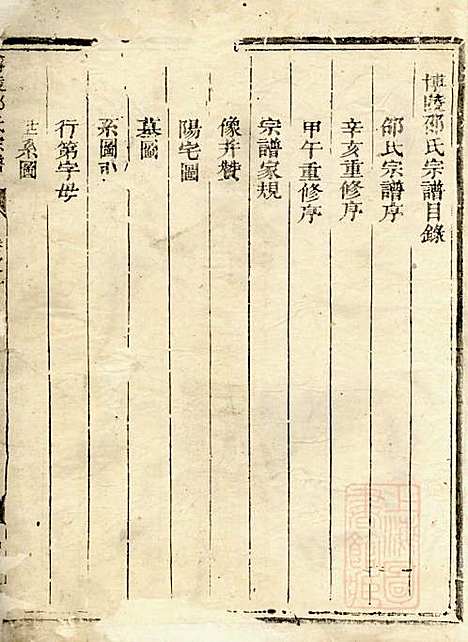 博陵邵氏宗譜目錄
邵氏宗譜序
辛亥重修序
甲午重修序
宗譜家規
像并贊
陽宅圖
墓圖
系圖引
行第字母
世系圖
上海圖書館藏